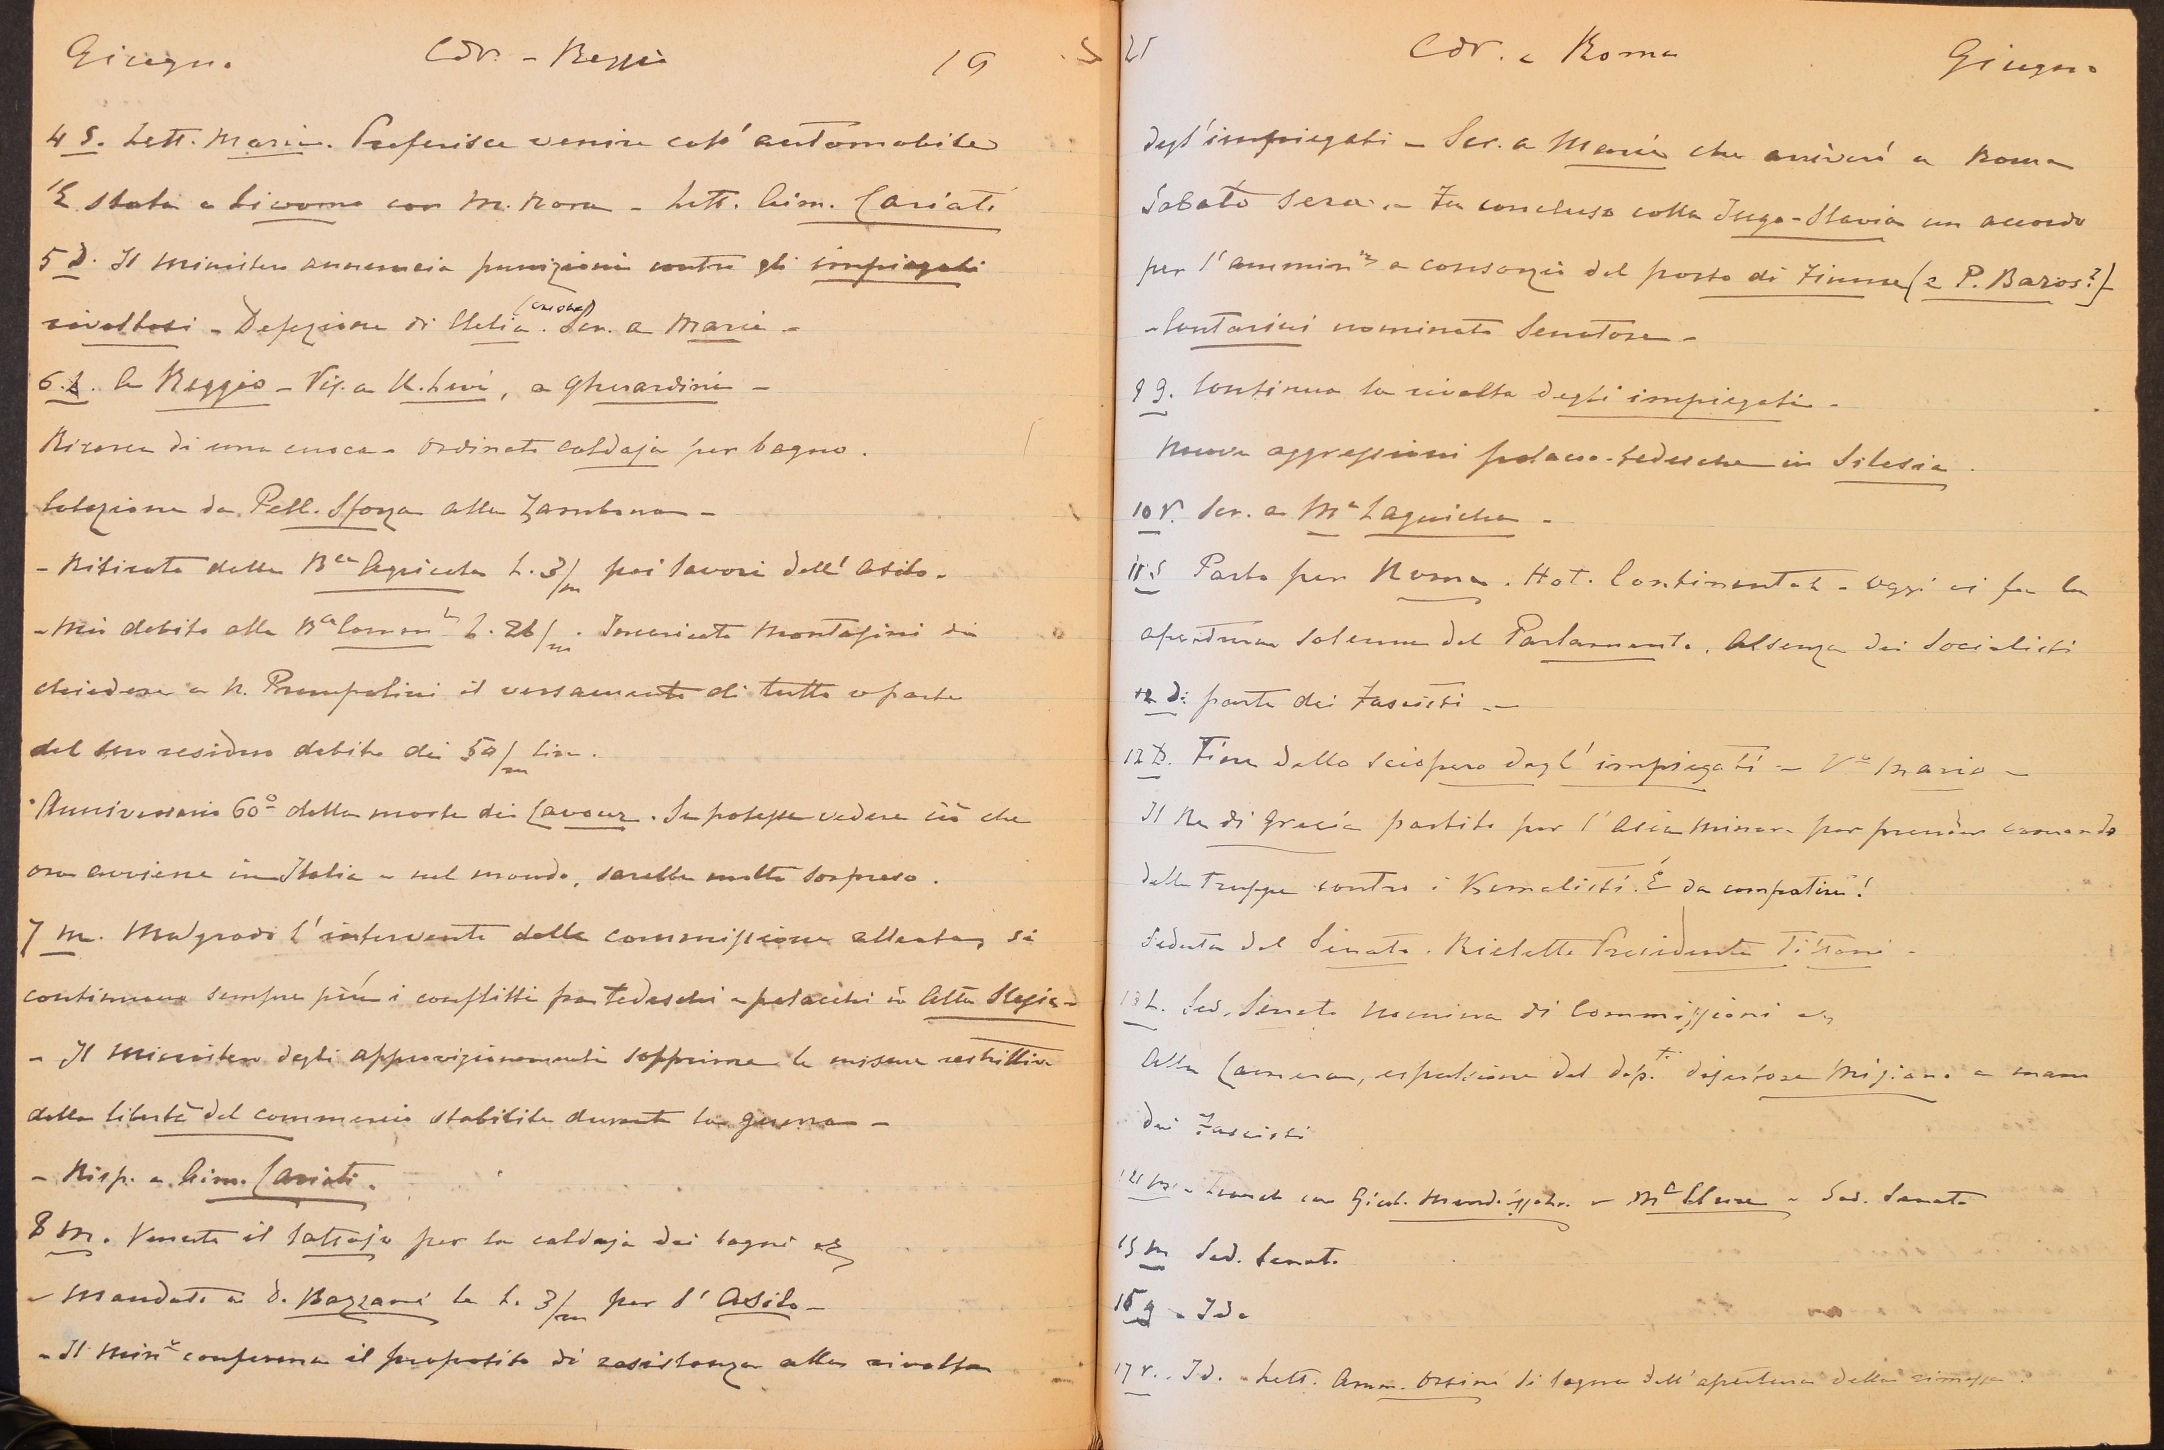 Giugno Cdr. - Reggio 19
4 S. Lett. Maria. Preferisce venire coll' automobile
È stata a Livorno con M. Mora - Lett. Cim. Cariati
5 D. Il ministero annuncia punizioni contro gli impiegati
rivoltosi - Defezione di Clelia (cuoca). Scr. a Maria -
6. L. A Reggio - Vis. a U. Levi, a Gherardini -
Ricerca di una cuoca - ordinato caldaja per bagno.
Colazione da Pell. Sforza alla Zambona -
- Ritirato dalla Bca Agricola L. 3/m pei lavori dell' Asilo.
- Mio debito alla Bca Comm L. 26/m. Incaricato Montagini di
chiedere a N. Prampolini il versamento di tutto o parte
del suo residuo debito di 50/m lire.
Anniversario 60º della morte di Cavour. Se potesse vedere ciò che
ora avviene in Italia e nel mondo, sarebbe molto sorpreso.
7 M. Malgrado l'intervento della commissione alleata, si
continuano sempre più i conflitti fra tedeschi e polacchi in Alta Slesia -
- Il ministero degli approvigionamenti sopprime le misure restrittive
della libertà del commercio stabilite durante la guerra -
- Risp. a Cim. Cariati.
8 M. Venuto il lattajo per la caldaja dei bagni
- Mandato a d. Bazzani le L. 3/m per l' Asilo -
- Il Minº conferma il proposito di resistenza alla rivolta
21 Cdr. e Roma Giugno
degl'impiegati - Scr. a Maria che arriverò a Roma
Sabato sera. - Fu concluso colla Jugo-Slavia un accordo
per l'ammin a consorzio del porto di Fiume (e P. Baros?) -
- Contarini nominato Senatore -
9 G. Continua la rivolta degli impiegati -
Nuove aggressioni polacco-tedesche in Silesia.
10 V. Scr. a Ma Laguiche -
11 S Parto per Roma. Hot. Continental - oggi vi fu la
apertura solenne del Parlamento. Assenza dei Socialisti
12 D: parte dei Fascisti -
12 D. Fine dello sciopero degl' impiegati - Va Maria -
Il Re di Grecia partito per l'Asia Minore per prender comando
delle truppe contro i Kemalisti. È da compatire!
Seduta del Senato. Rieletto Presidente Tittoni -
13 L. Sed. Senato nomina di Commissioni
Alla Camera, espulsione del dep. disertore Misiano a mano
dei Fascisti
14 M. - Lunch con - Sed. Senato
15 M Sed. Senato
16 G - Id.
17 V. Id. - Lett. Amm. Orsini si lagna dell'apertura della rimessa.